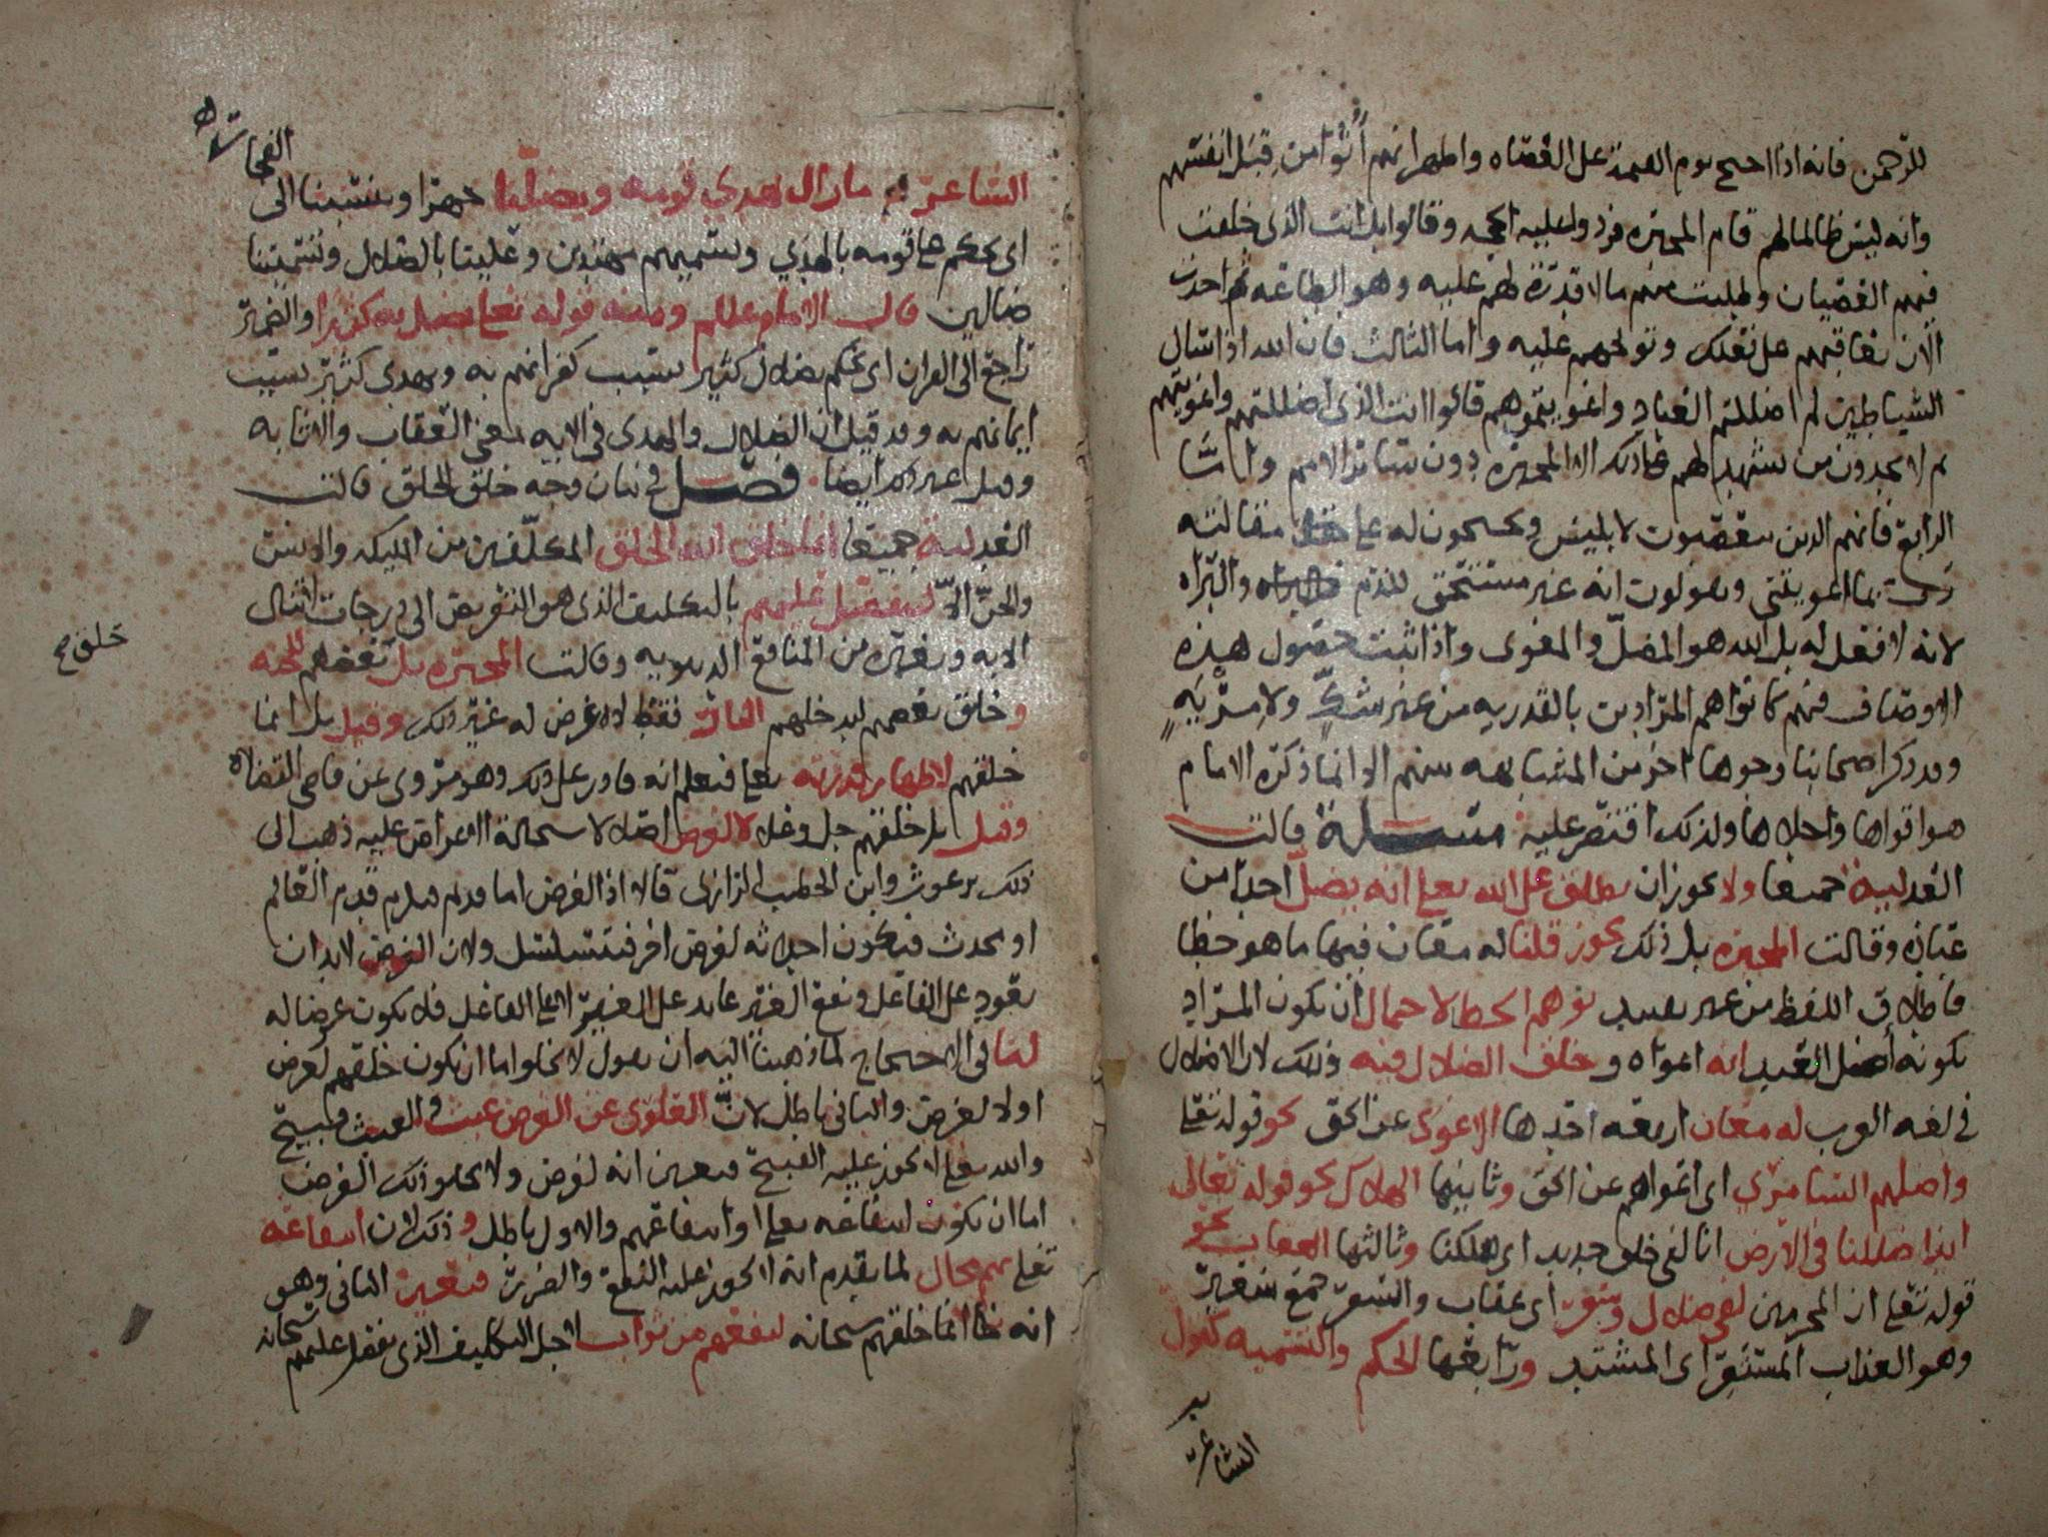 للرحمن فانه اذا احتج يوم القيمة على العصاه واظهر انهم اتوا من قبل انفسهم
وانه ليس ظالما لهم قام المجبره فردوا عليه الحجه وقالوا بل انت الذي خلقت
فيهم العصيان وطلبت منهم ما لا قدرة لهم عليه وهو الطاعه ثم اخذت
الان تعاقبهم على فعلك وتولجهم عليه واما الثالث فان الله اذا سال
الشياطين لم اضللتم العباد واغويتموهم قالوا انت الذي اضللتهم واغويتهم
ثم لا يجدون من يشهد لهم على ذلك الا المجبره دون سائر الامم واما
الرابع فانهم الذين يتعصبون لابليس ويصححون له مقالته
رب بما اغويتني ويقولون انه غير مستحق للذم والبراه
لانه لا فعل له بل الله هو المضل والمغوى واذا ثبت حصول هذه
الاوصاف فيهم كانوا هم المرادين بالقدريه من غير شك ولا مريه
وقد ذكر اصحابنا وجوها اخر من المشابهه بينهم الا انما ذكره الامام
هو اقواها واجلاها ولذلك اقتصر عليه مسئلة قالت
العدليه جميعا ولا يجوز ان يطلق على الله تعلى انه يضل احدا من
عباده وقالت المجبره بل ذلك يجوز قلنا له معان فيها ما هو خطا
فاطلاق اللفظ من غير تقييد يوهم الخطا لاحتمال ان يكون المراد
بكونه اضل العبد انه اغواه وخلق الضلال فيه وذلك لان الاضلال
في لغه العرب له معان اربعه احدها الاغوى عن الحق نحو قوله تعلى
واضلهم السامري اى اغواهم عن الحق وثانيها الهلاك نحو قوله تعالى
ائذا ضللنا في الارض انا لفى خلق جديد اى هلكنا وثالثها العقاب نحو
قوله تعلى ان المجرمين لفى ضلال وسعر اى عقاب والسعر جمع سعير
وهو العذاب المستعر اى المشتد ورابعها الحكم والتسميه كقول
الشاعر
الشاعر ما زال يهدي قومه ويضلنا جهرا وينسبنا الى الفجار
اى يحكم على قومه بالهدي ويسميهم مهتدين وعلينا بالضلال ويسمينا
ضالين قال الامام علم ومنه قوله تعلى يضل به كثيرا والضمير
راجع الى القران اى يحكم بضلال كثير بسبب كفرانهم به ويهدى كثير بسبب
ايمانهم به وقد قيل ان الضلال والهدى في الايه بمعنى العقاب والاثابه
وقيل غير ذلك ايضا فصل في بيان وجه خلق الخلق قالت
العدليه جميعا انما خلق الله الخلق المكلفين من المليكه والانس
والجن الا ليتفضل عليهم بالتكليف الذى هو التعريض الى درجات لا تنال
الا به وبغيره من المنافع الدنيويه وقالت المجبره بل بعضهم للجنه
خلق صح
وخلق بعضهم ليدخلهم النار فقط لا غرض له غير ذلك وقيل بل انما
خلقهم لاظهار قدرته تعلى فيعلم انه قادر على ذلك وهو مروى عن قاضى القضاة
وقيل بل خلقهم جل وعلا لا لغرض اصلا لاستحالة الاغراض عليه ذهب الى
ذلك برغوث وابن الخطيب الرازى قالا اذ الغرض اما قديم فيلزم قدم العالم
او محدث فيكون احداثه لغرض اخر فيتسلسل ولان الغرض لا بد ان
يعود على الفاعل ونفع الغير عايد على الغير لا على الفاعل فلا يكون غرضا له
لنا في الاحتجاج لما ذهبنا اليه ان نقول لا يخلو اما ان يكون خلقهم لغرض
او لا لغرض والثانى باطل لان العلوى عن الغرض عبث والعبث قبيح
والله تعلى لا يجوز عليه القبيح فتعين انه لغرض ولا يخلو ذلك الغرض
اما ان يكون انتفاعه تعلى او انتفاعهم والاول باطل وذلك لان انتفاعه
تعلى بهم محال لما تقدم انه لا يجوز عليه النفع والضرر فتعين الثانى وهو
انه انما خلقهم سبحانه لينفعهم من ثواب لاجل التكليف الذى تفضل عليهم سبحانه